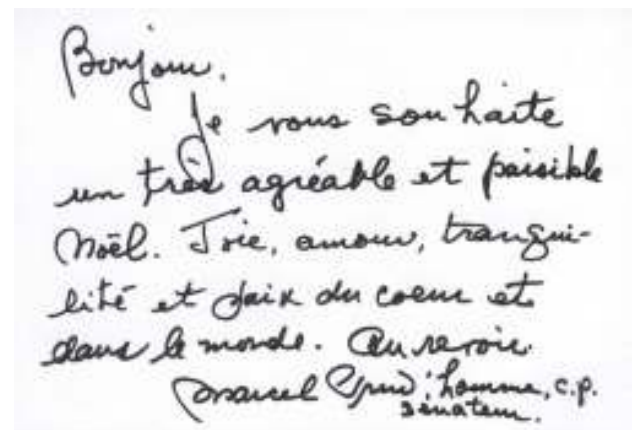 Bonjour.
Je vous souhaite
un très agréable et paisible
Noël. Joie, amour, tranqui-
lité et paix du coeur et
dans le monde. Au revoir.
Marcel Prud'homme, c.p.
sénateur.